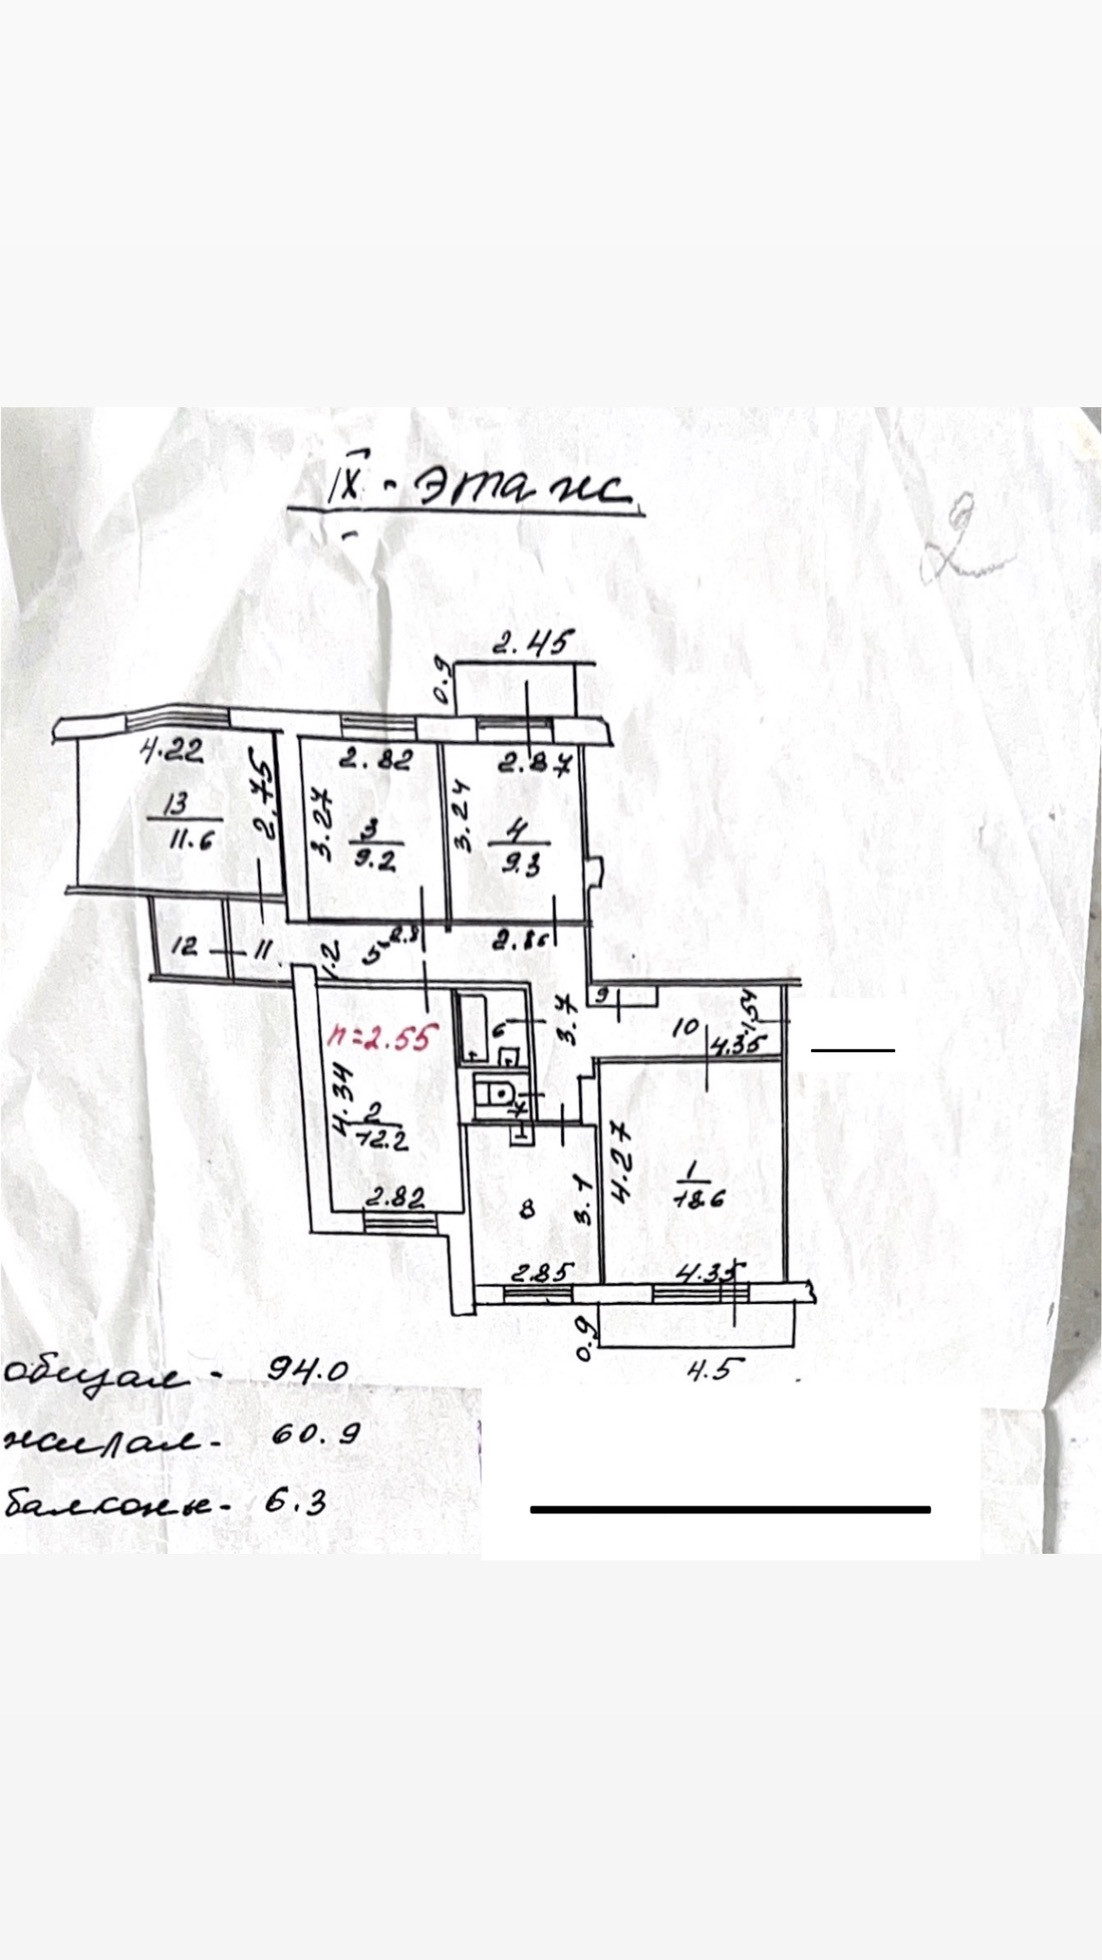 IX - этаж
2.45
0.9
4.22
2.75
13
11.6
2.82
3.27
3
9.2
2.87
3.24
4
9.3
12
11
1.2
5
2.8
2.86
3.7
9
10
1.54
4.35
h=2.55
6
7
4.34
2
12.2
2.82
8
3.1
2.85
4.27
1
18.6
4.35
0.9
4.5
общая - 94.0
жилая - 60.9
балконы - 6.3